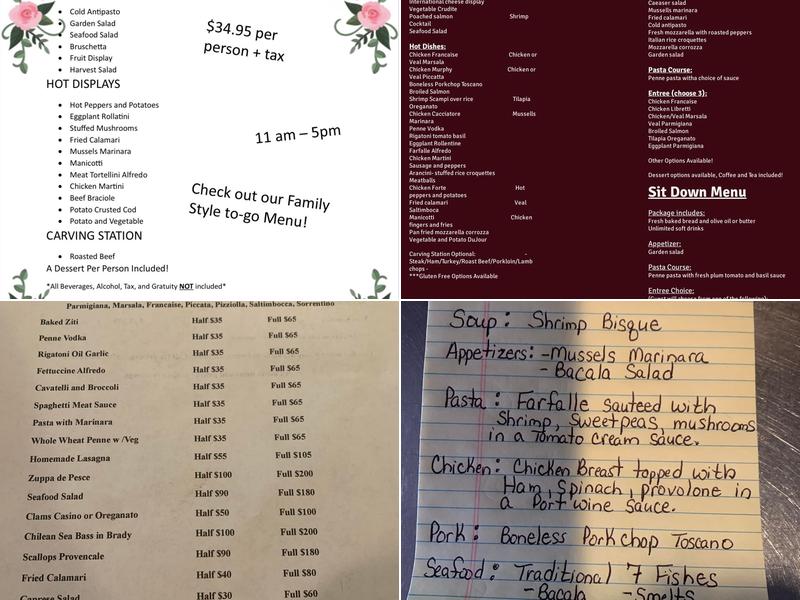 Cold Antipasto
Garden Salad
Seafood Salad
Bruschetta
Fruit Display
Harvest Salad
$34.95 per
person + tax
HOT DISPLAYS
Hot Peppers and Potatoes
Eggplant Rollatini
Stuffed Mushrooms
Fried Calamari
Mussels Marinara
Manicotti
Meat Tortellini Alfredo
Chicken Martini
Beef Braciole
Potato Crusted Cod
Potato and Vegetable
11 am – 5pm
Check out our Family
Style to-go Menu!
CARVING STATION
Roasted Beef
A Dessert Per Person Included!
*All Beverages, Alcohol, Tax, and Gratuity NOT included*
International cheese display
Vegetable Crudite
Poached salmon Shrimp
Cocktail
Seafood Salad
Hot Dishes:
Chicken Francaise Chicken or
Veal Marsala
Chicken Murphy Chicken or
Veal Piccatta
Boneless Porkchop Toscano
Broiled Salmon
Shrimp Scampi over rice Tilapia
Oreganato
Chicken Cacciatore Mussells
Marinara
Penne Vodka
Rigatoni tomato basil
Eggplant Rollentine
Farfalle Alfredo
Chicken Martini
Sausage and peppers
Arancini- stuffed rice croquettes
Meatballs
Chicken Forte Hot
peppers and potatoes
Fried calamari Veal
Saltimboca
Manicotti Chicken
fingers and fries
Pan fried mozzarella corrozza
Vegetable and Potato DuJour
Carving Station Optional: -
Steak/Ham/Turkey/Roast Beef/Porkloin/Lamb
chops -
***Gluten Free Options Available
Caeaser salad
Mussells marinara
Fried calamari
Cold antipasto
Fresh mozzarella with roasted peppers
Italian rice croquettes
Mozzarella corrozza
Garden salad
Pasta Course:
Penne pasta witha choice of sauce
Entree (choose 3):
Chicken Francaise
Chicken Libretti
Chicken/Veal Marsala
Veal Parmigiana
Broiled Salmon
Tilapia Oreganato
Eggplant Parmigiana
Other Options Available!
Dessert options available, Coffee and Tea included!
Sit Down Menu
Package includes:
Fresh baked bread and olive oil or butter
Unlimited soft drinks
Appetizer:
Garden salad
Pasta Course:
Penne pasta with fresh plum tomato and basil sauce
Entree Choice:
(Guest will choose from one of the following):
Parmigiana, Marsala, Francaise, Piccata, Pizziolla, Saltimbocca, Sorrentino
Baked Ziti Half $35 Full $65
Penne Vodka Half $35 Full $65
Rigatoni Oil Garlic Half $35 Full $65
Fettuccine Alfredo Half $35 Full $65
Cavatelli and Broccoli Half $35 Full $65
Spaghetti Meat Sauce Half $35 Full $65
Pasta with Marinara Half $35 Full $65
Whole Wheat Penne w /Veg Half $35 Full $65
Homemade Lasagna Half $55 Full $105
Zuppa de Pesce Half $100 Full $200
Seafood Salad Half $90 Full $180
Clams Casino or Oreganato Half $50 Full $100
Chilean Sea Bass in Brady Half $100 Full $200
Scallops Provencale Half $90 Full $180
Fried Calamari Half $40 Full $80
Caprese Salad Half $30 Full $60
Soup: Shrimp Bisque
Appetizers: -Mussels Marinara
- Bacala Salad
Pasta: Farfalle sauteed with
Shrimp, sweetpeas, mushrooms
in a Tomato cream sauce.
Chicken: Chicken Breast topped with
Ham, Spinach, provolone in
a Port wine sauce.
Pork: Boneless Pork chop Toscano
Seafood: Traditional 7 Fishes
-Bacala -Smelts